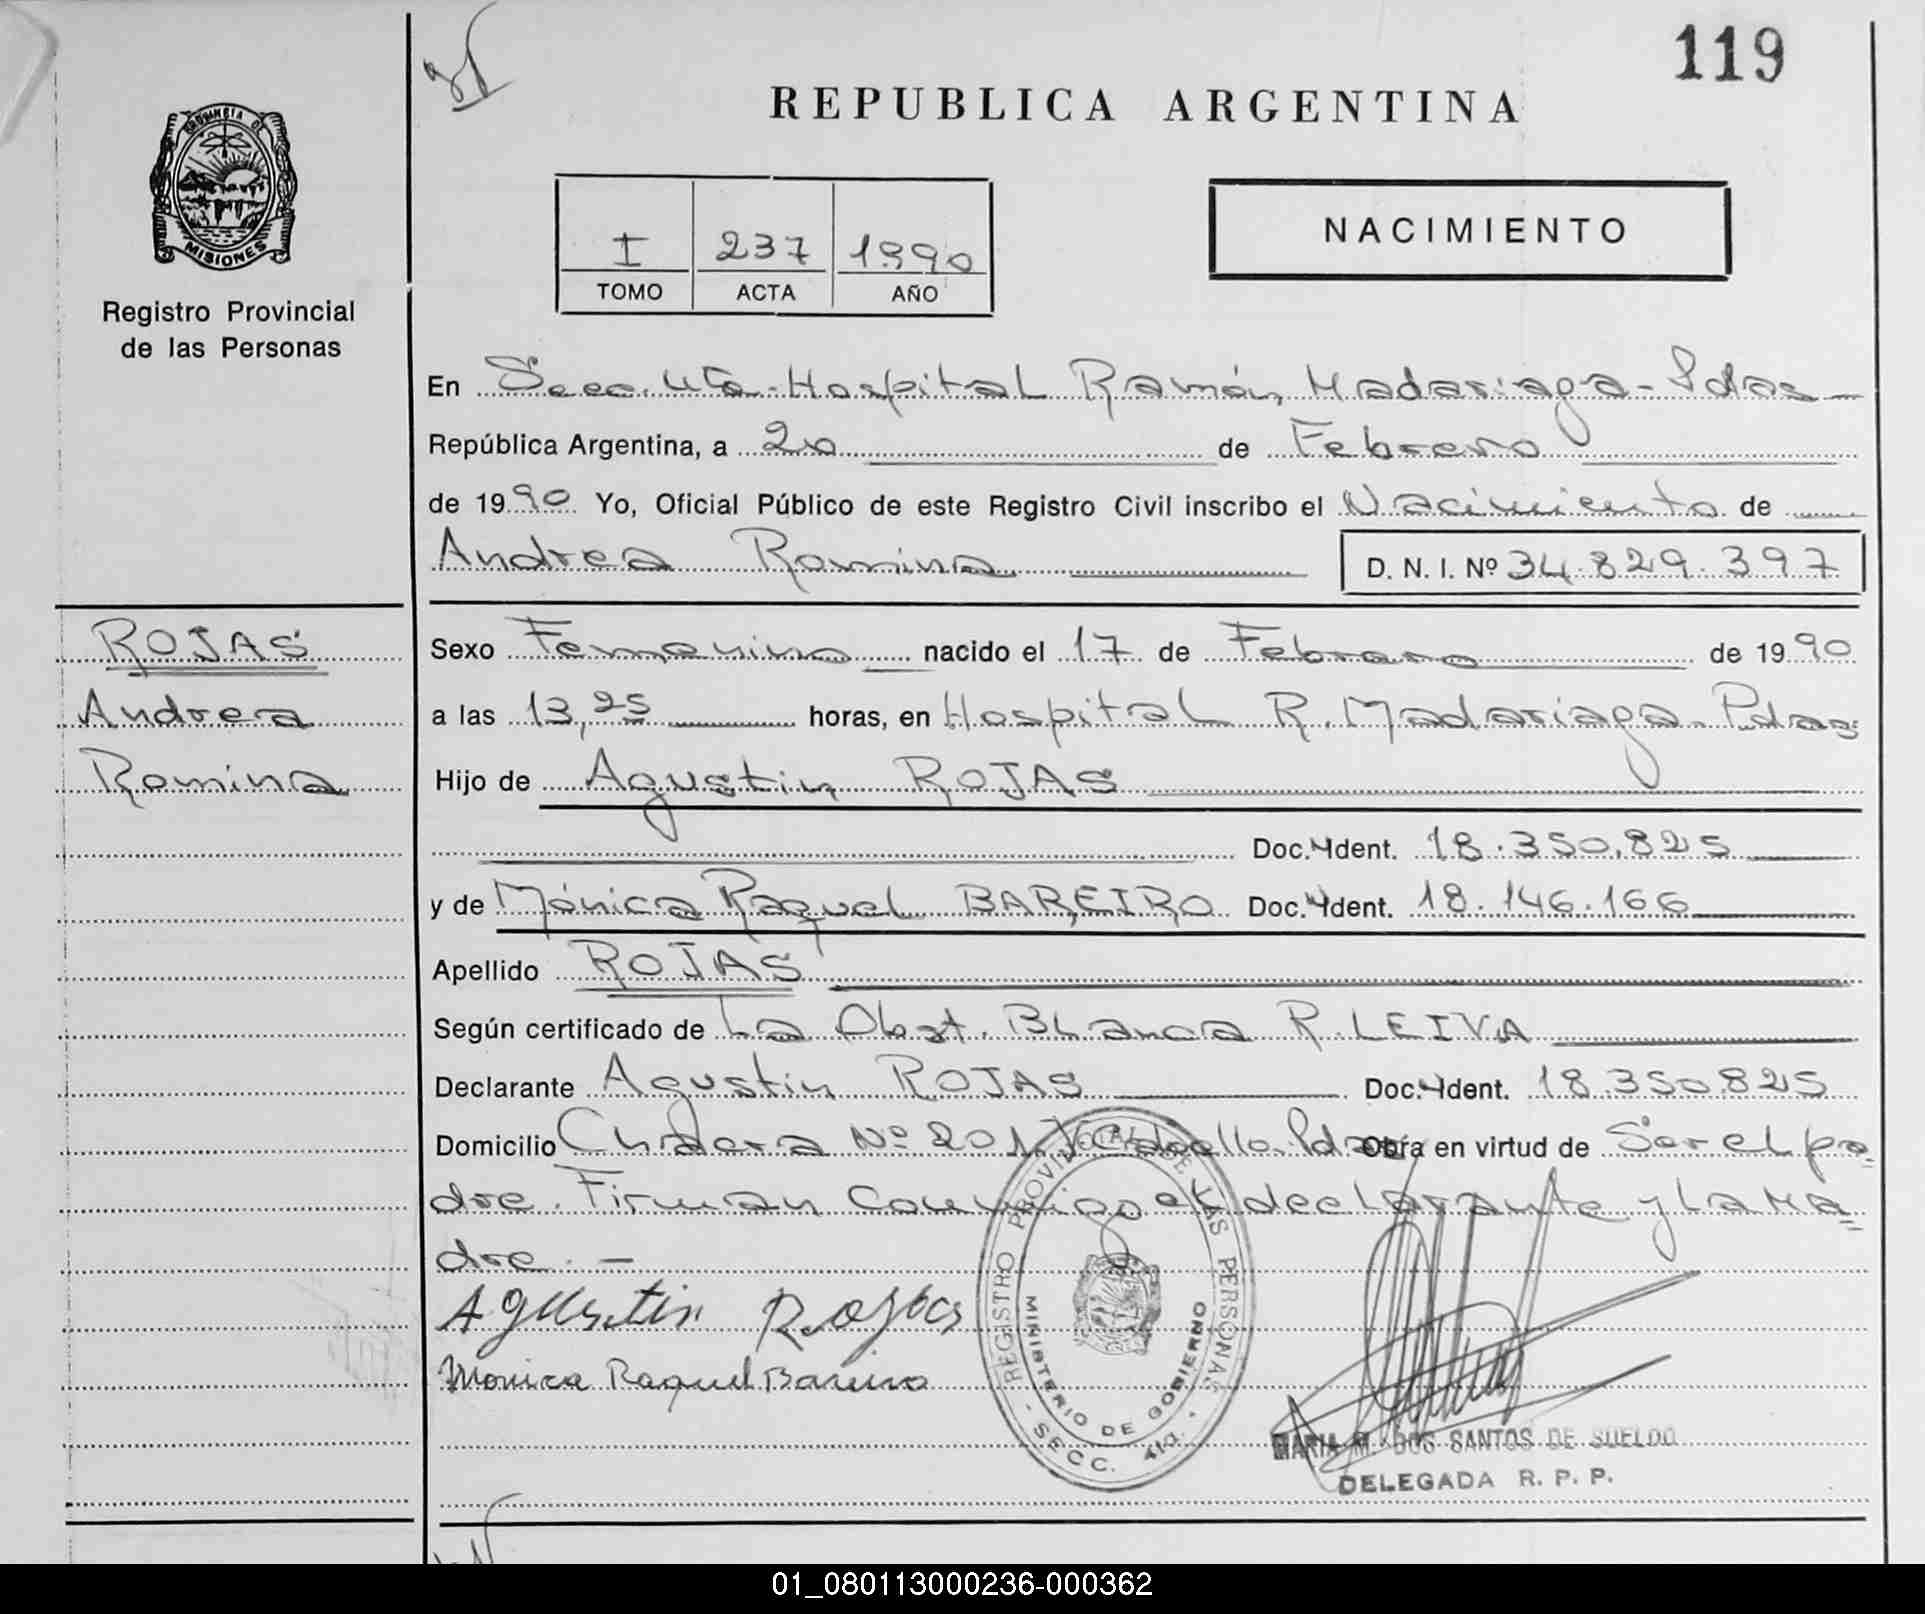 119
REPUBLICA ARGENTINA
PROVINCIA DE
MISIONES
Registro Provincial
de las Personas
I 237 1990
TOMO ACTA AÑO
NACIMIENTO
En Secc. 4ta. Hospital Ramón Madariaga - Pdas
República Argentina, a 20 de Febrero
de 1990 Yo, Oficial Público de este Registro Civil inscribo el Nacimiento de
Andrea Romina D. N. I. Nº 34.829.397
ROJAS
Andrea
Romina
Sexo Femenino nacido el 17 de Febrero de 1990
a las 13,25 horas, en Hospital R. Madariaga. Pdas
Hijo de Agustin ROJAS
Doc. Ident. 18.350.825
y de Mónica Raquel BAREIRO Doc. Ident. 18.146.166
Apellido ROJAS
Según certificado de La Obst. Blanca R. LEIVA
Declarante Agustin ROJAS Doc. Ident. 18.350.825
Domicilio Chacra Nº 201 Pdas Obra en virtud de Ser el pa=
dre. Firman Conmigo el declarante y la Ma=
dre. -
Agustin Rojas
Monica Raquel Bareiro
REGISTRO PROVINCIAL DE LAS PERSONAS
MINISTERIO DE GOBIERNO
- SECC. 4ta. -
MARIA M. DOS SANTOS DE SUELDO
DELEGADA R. P. P.
01_080113000236-000362